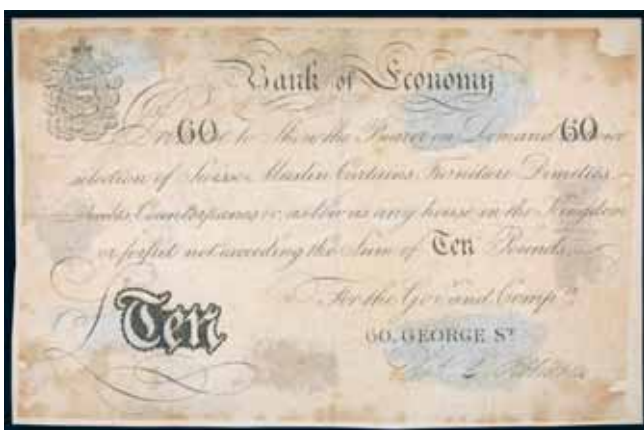 Bank of Economy
60 to Show the Bearer on Demand 60
selection of Swiss Muslin Curtains Furniture Dimities
Counterpanes as low as any house in the Kingdom
or forfeit not exceeding the Sum of Ten Pounds
For the Gov.r and Comp.a
Ten
60, GEORGE S.T